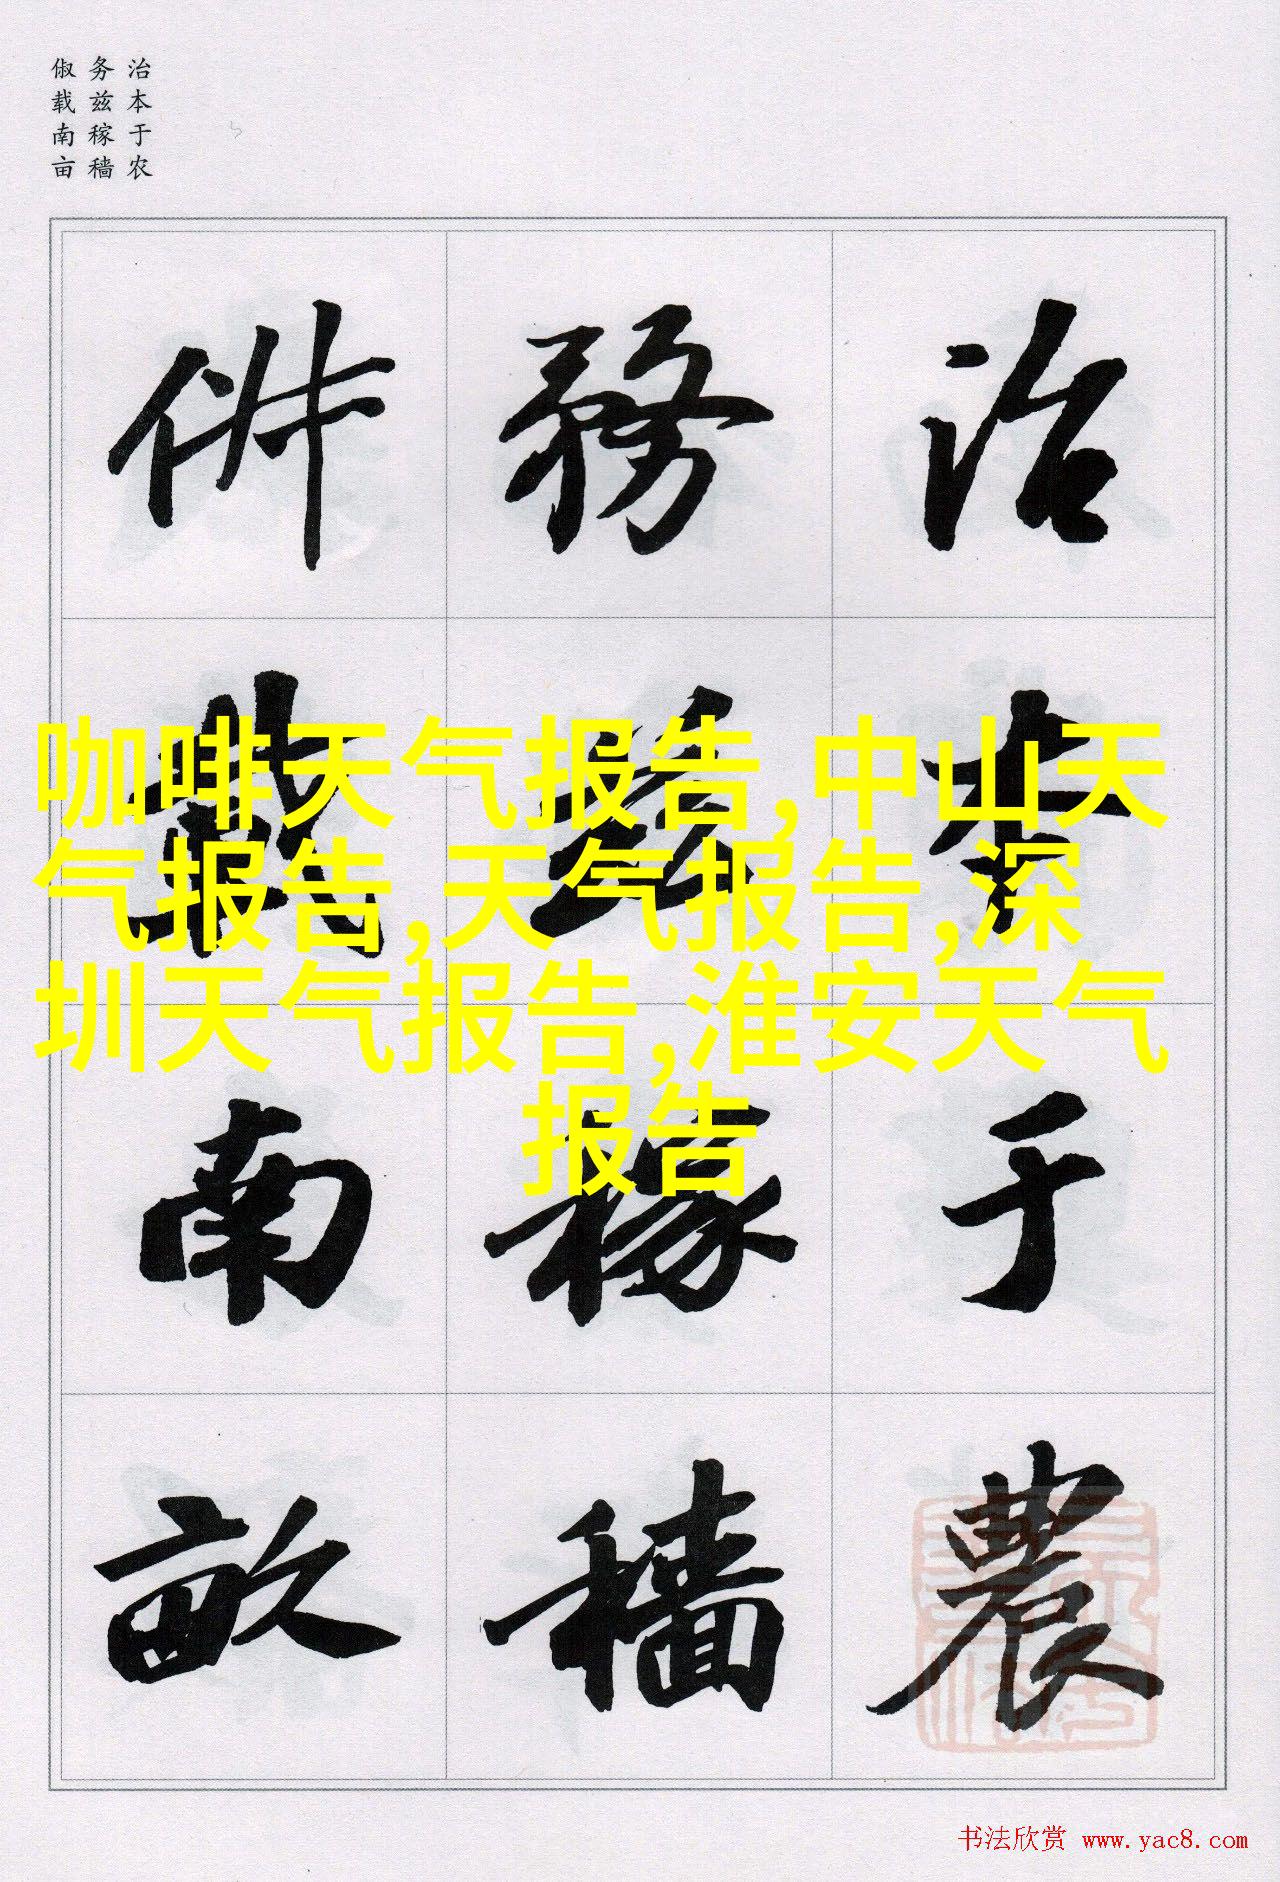 治本于农
务兹稼穑
俶载南亩
治本于農
務茲稼穡
俶載南畝
咖啡天气报告,中山天
气报告,天气报告,深
圳天气报告,淮安天气
报告
书法欣赏 www.yac8.com